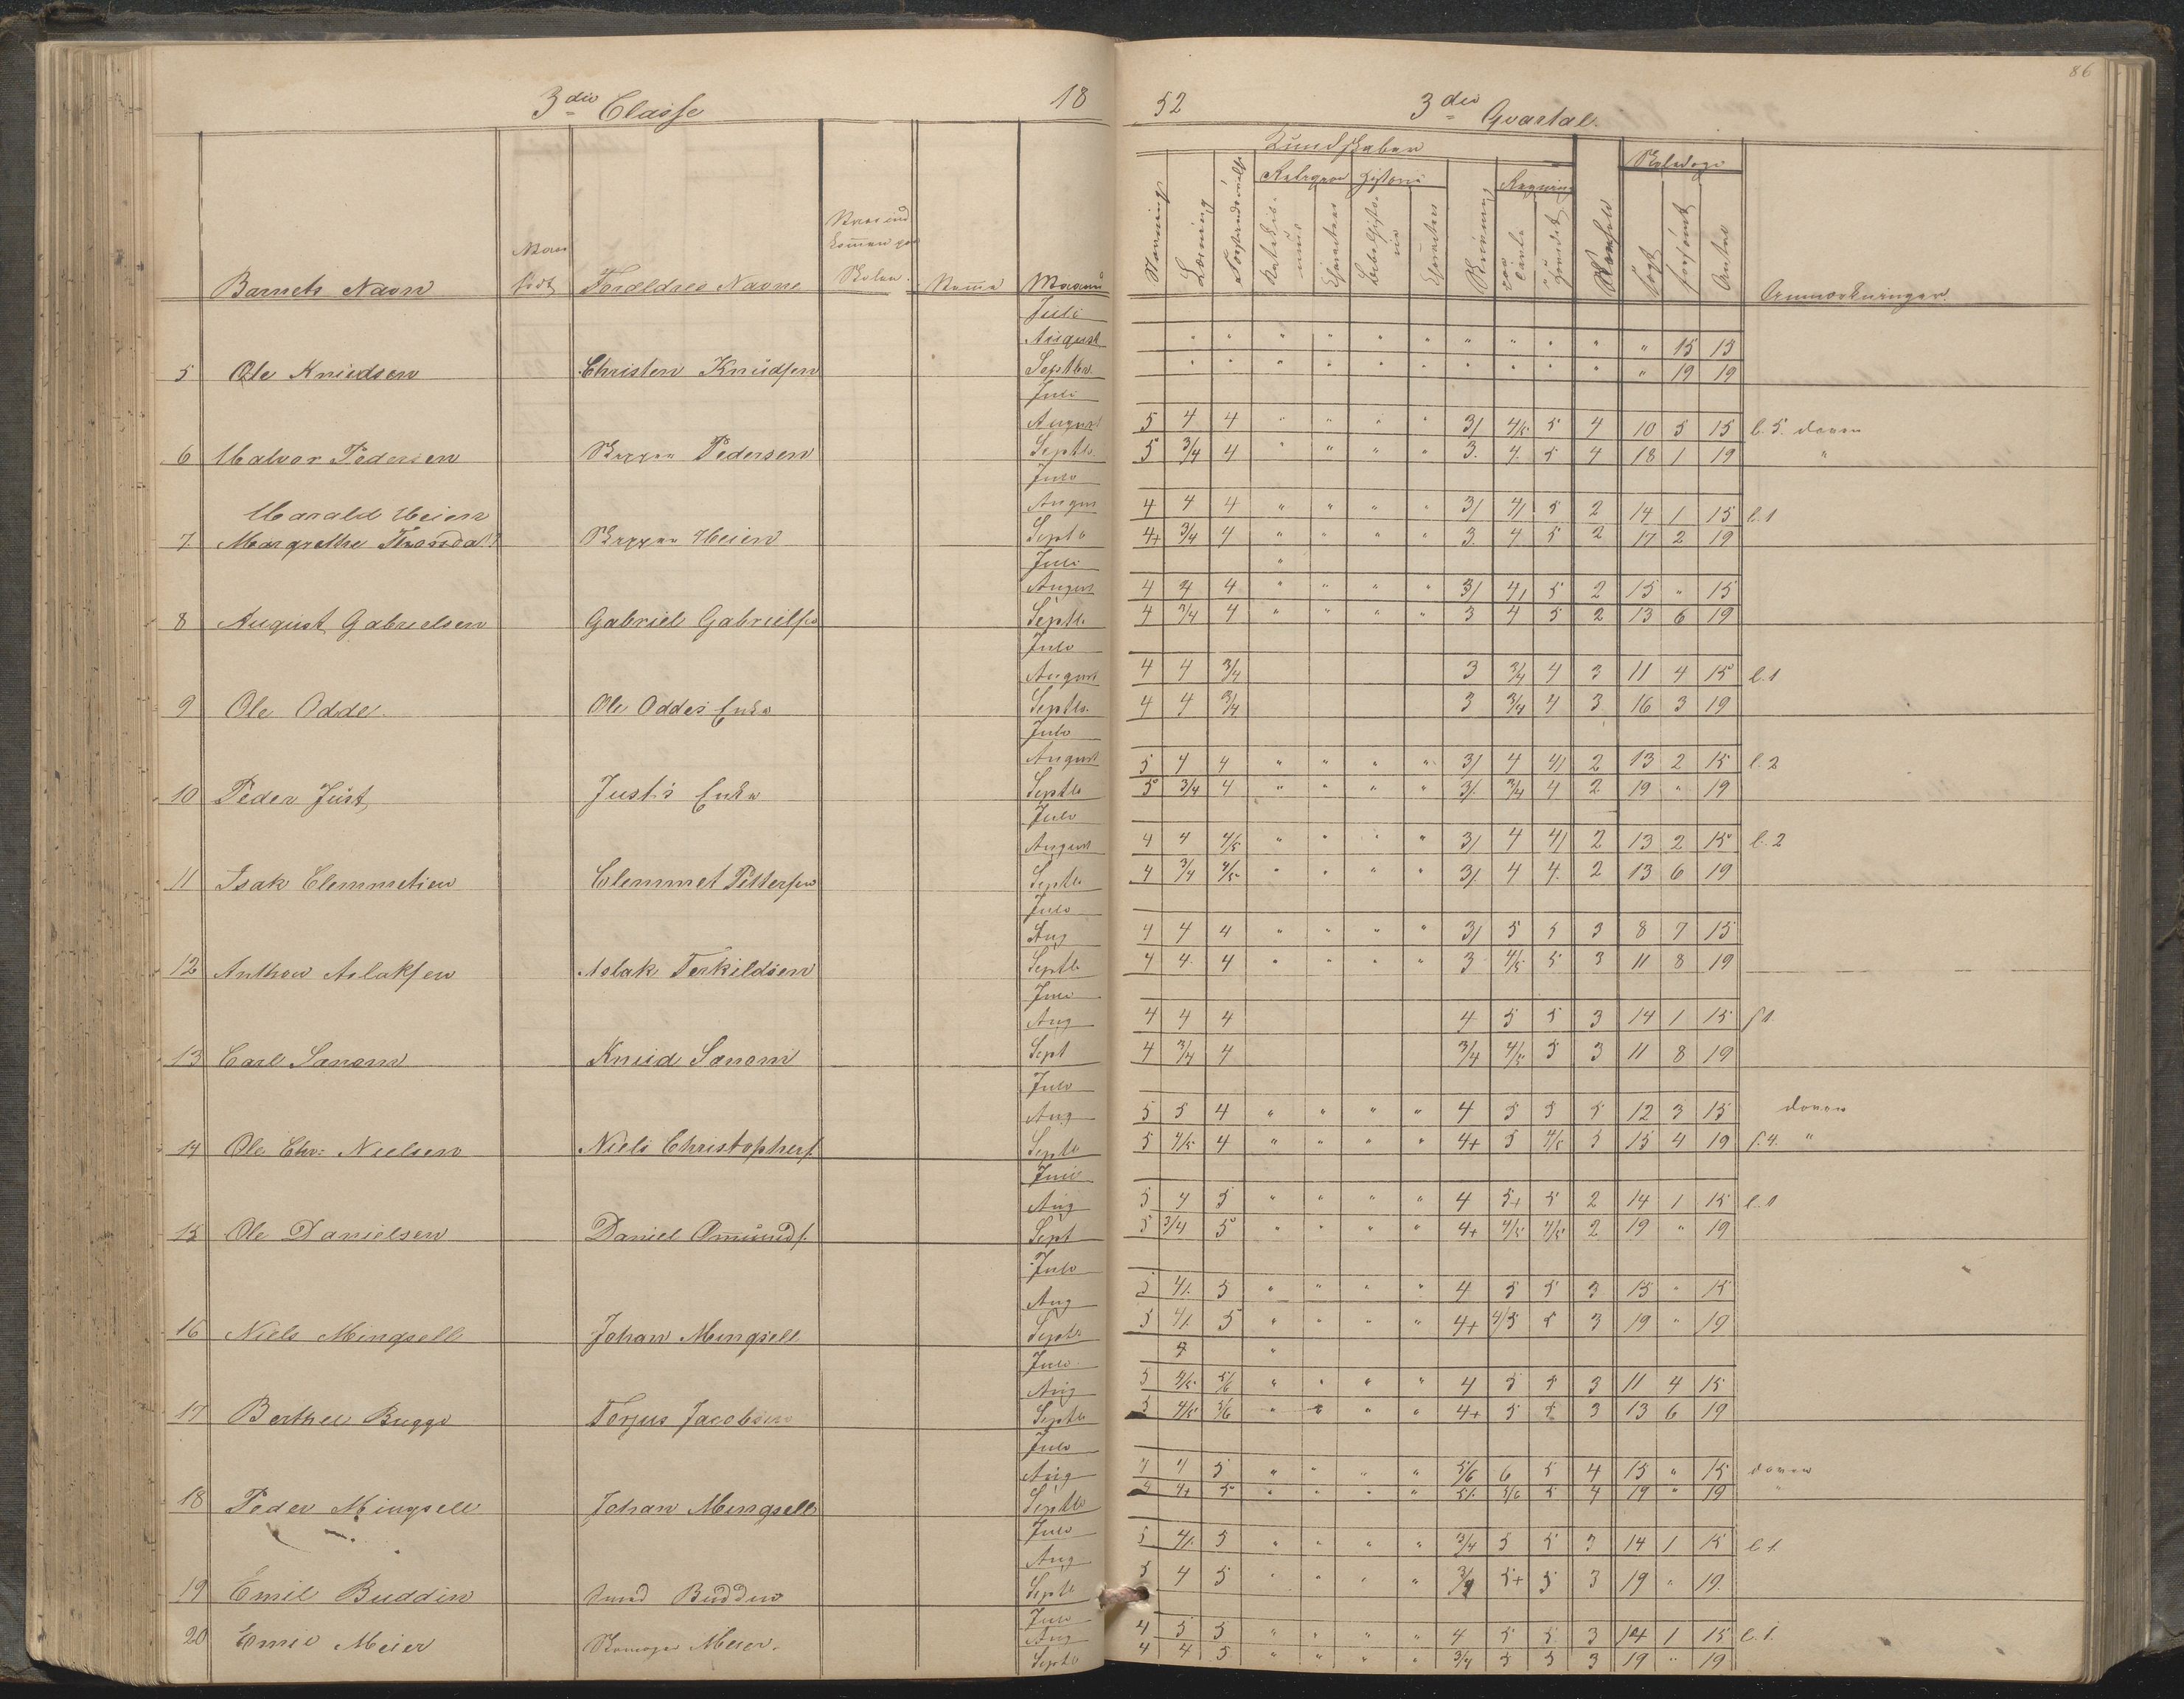 86
3die Classe 18
52 3die Qvartal.
Kundskaber
Religion Historie Regning
Barnets Navn
født
Forældres Navne
Skolen.
Maaned
Læsning
Forsømt
Antal
Anmærkninger
Juli
August " " " " " " " " " " " " 15 15
5 Ole Knudsen Christen Knudsen Septbr " " " " " " " " " " " 19 19
Juli
August 5 4 4 " " " " 3/ 4/5 5 4 10 5 15 l. 5. doven
6 Halvor Pedersen Skipper Pedersen Septb. 5 3/4 4 " " " " 3. 4. 5 4 18 1 19 "
Juli
Harald Heiern August 4 4 4 " " " " 3/ 4/ 5 2 14 1 15 l. 1
7. Margrethe Skipper Heiern Septb 4+ 3/4 4 " " " " 3. 4 5 2 17 2 19
Juli
August 4 4 4 " " " " 3/ 4/ 5 2 15 " 15
8 August Gabrielsen Gabriel Gabrielsen Septb. 4 3/4 4 " " " " 3 4 5 2 13 6 19
Juli
August 4 4 3/4 3 3/4 4 3 11 4 15 l. 1
9 Ole Odde. Ole Oddes Enke Septb. 4 4 3/4 3 3/4 4 3 16 3 19
Juli
August 5 4 4 " " " " 3/ 4 4/ 2 13 2 15 l. 2
10 Peder Just Just's Enke Septb 5 3/4 4 " " " " 3/. 3/4 4 2 19 " 19
Juli
August 4 4 4/5 " " " " 3/ 4 4/ 2 13 2 15 l. 2
11 Isak Clemmetsen Clemmet Pettersen Septb 4 3/4 4/5 " " " " 3/. 4 4. 2 13 6 19
Juli
Aug 4 4 4 " " " " 3/ 5 5 3 8 7 15
12 Anthon Aslaksen Aslak Terkildsen Septb 4 4. 4 " " " " 3 4/5 5 3 11 8 19
Juli
Aug 4 4 4 4 5 5 3 14 1 15 f 1.
13 Carl Sanom Knud Sanom Sept 4 3/4 4 3/4 4/5 5 3 11 8 19
Juli
Aug 5 5 4 " " " " 4 5 5 5 12 3 15 doven
14 Ole Chr: Nielsen Niels Christophers. Septb 5 4/5 4 " " " " 4+ 5 4/5 5 15 4 19 f. 4. "
Juli
Aug 5 4 5 " " " " 4 5+ 5 2 14 1 15 l. 1
15 Ole Danielsen Daniel Omunds. Sept 5 3/4 5 " " " " 4+ 4/5 4/5 2 19 " 19
Juli
Aug 5 4/. 5 " " " " 4 5 5 3 15 " 15
16 Niels Mingsell Johan Mingsell Septb 5 4/. 5 " " " " 4+ 4/5 5 3 19 " 19
Juli
Aug 5 4/5 5/6 " " " " 4 5 5 3 11 4 15
17 Berthel Bugge Torjus Jacobsen Septb 5 4/5 5/6 " " " " 4+ 5 5 3 13 6 19
Juli
Aug 4 4 5 " " " " 5/6 6 5 4 15 " 15 doven
18 Peder Mingsell Johan Mingsell Septb 4 4+ 5 " " " " 5/. 5/6 5 4 19 " 19 "
Juli 5 4/. 5 " " " " 3/4 5 5 3 14 1 15 l. 1.
Aug
19 Emil Buddin Buddin Septb 5 4 5 " " " " 3/4 5+ 5 3 19 " 19.
Juli
20 Emil Meier Meier. Aug 4 5 5 " " " " 4 5 5 3 14 1 15 l. 1.
Septb 4 4 5 " " " " 3/4 5 5 3 19 " 19